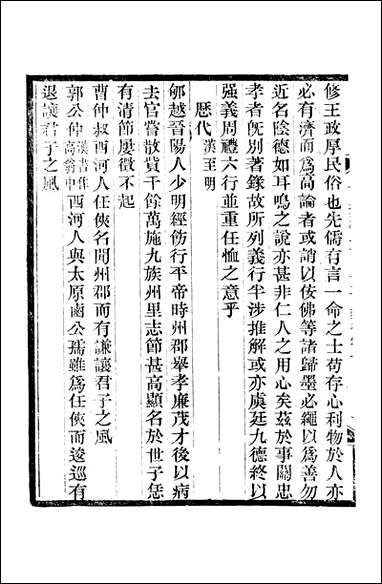 修王政厚民俗也先儒有言一命之士苟存心利物於人亦
必有濟而爲高論者或誚以佞佛等諸歸墨必繩以爲善勿
近名陰德如耳鳴之說亦甚非仁人之用心矣茲於事關忠
孝者旣別著錄故所列義行半涉推解或亦虞廷九德終以
强義周禮六行並重任恤之意乎
歷代漢至明
郇越晉陽人少明經飭行平帝時州郡舉孝廉茂才後以病
去官嘗散貲千餘萬施九族州里志節甚高顯名於世子恁
有清節屢徵不起
曹仲叔西河人任俠名聞州郡而有謙讓君子之風
郭公仲漢書作高翁中西河人與太原鹵公孺雖爲任俠而逡巡有
退讓君子之風